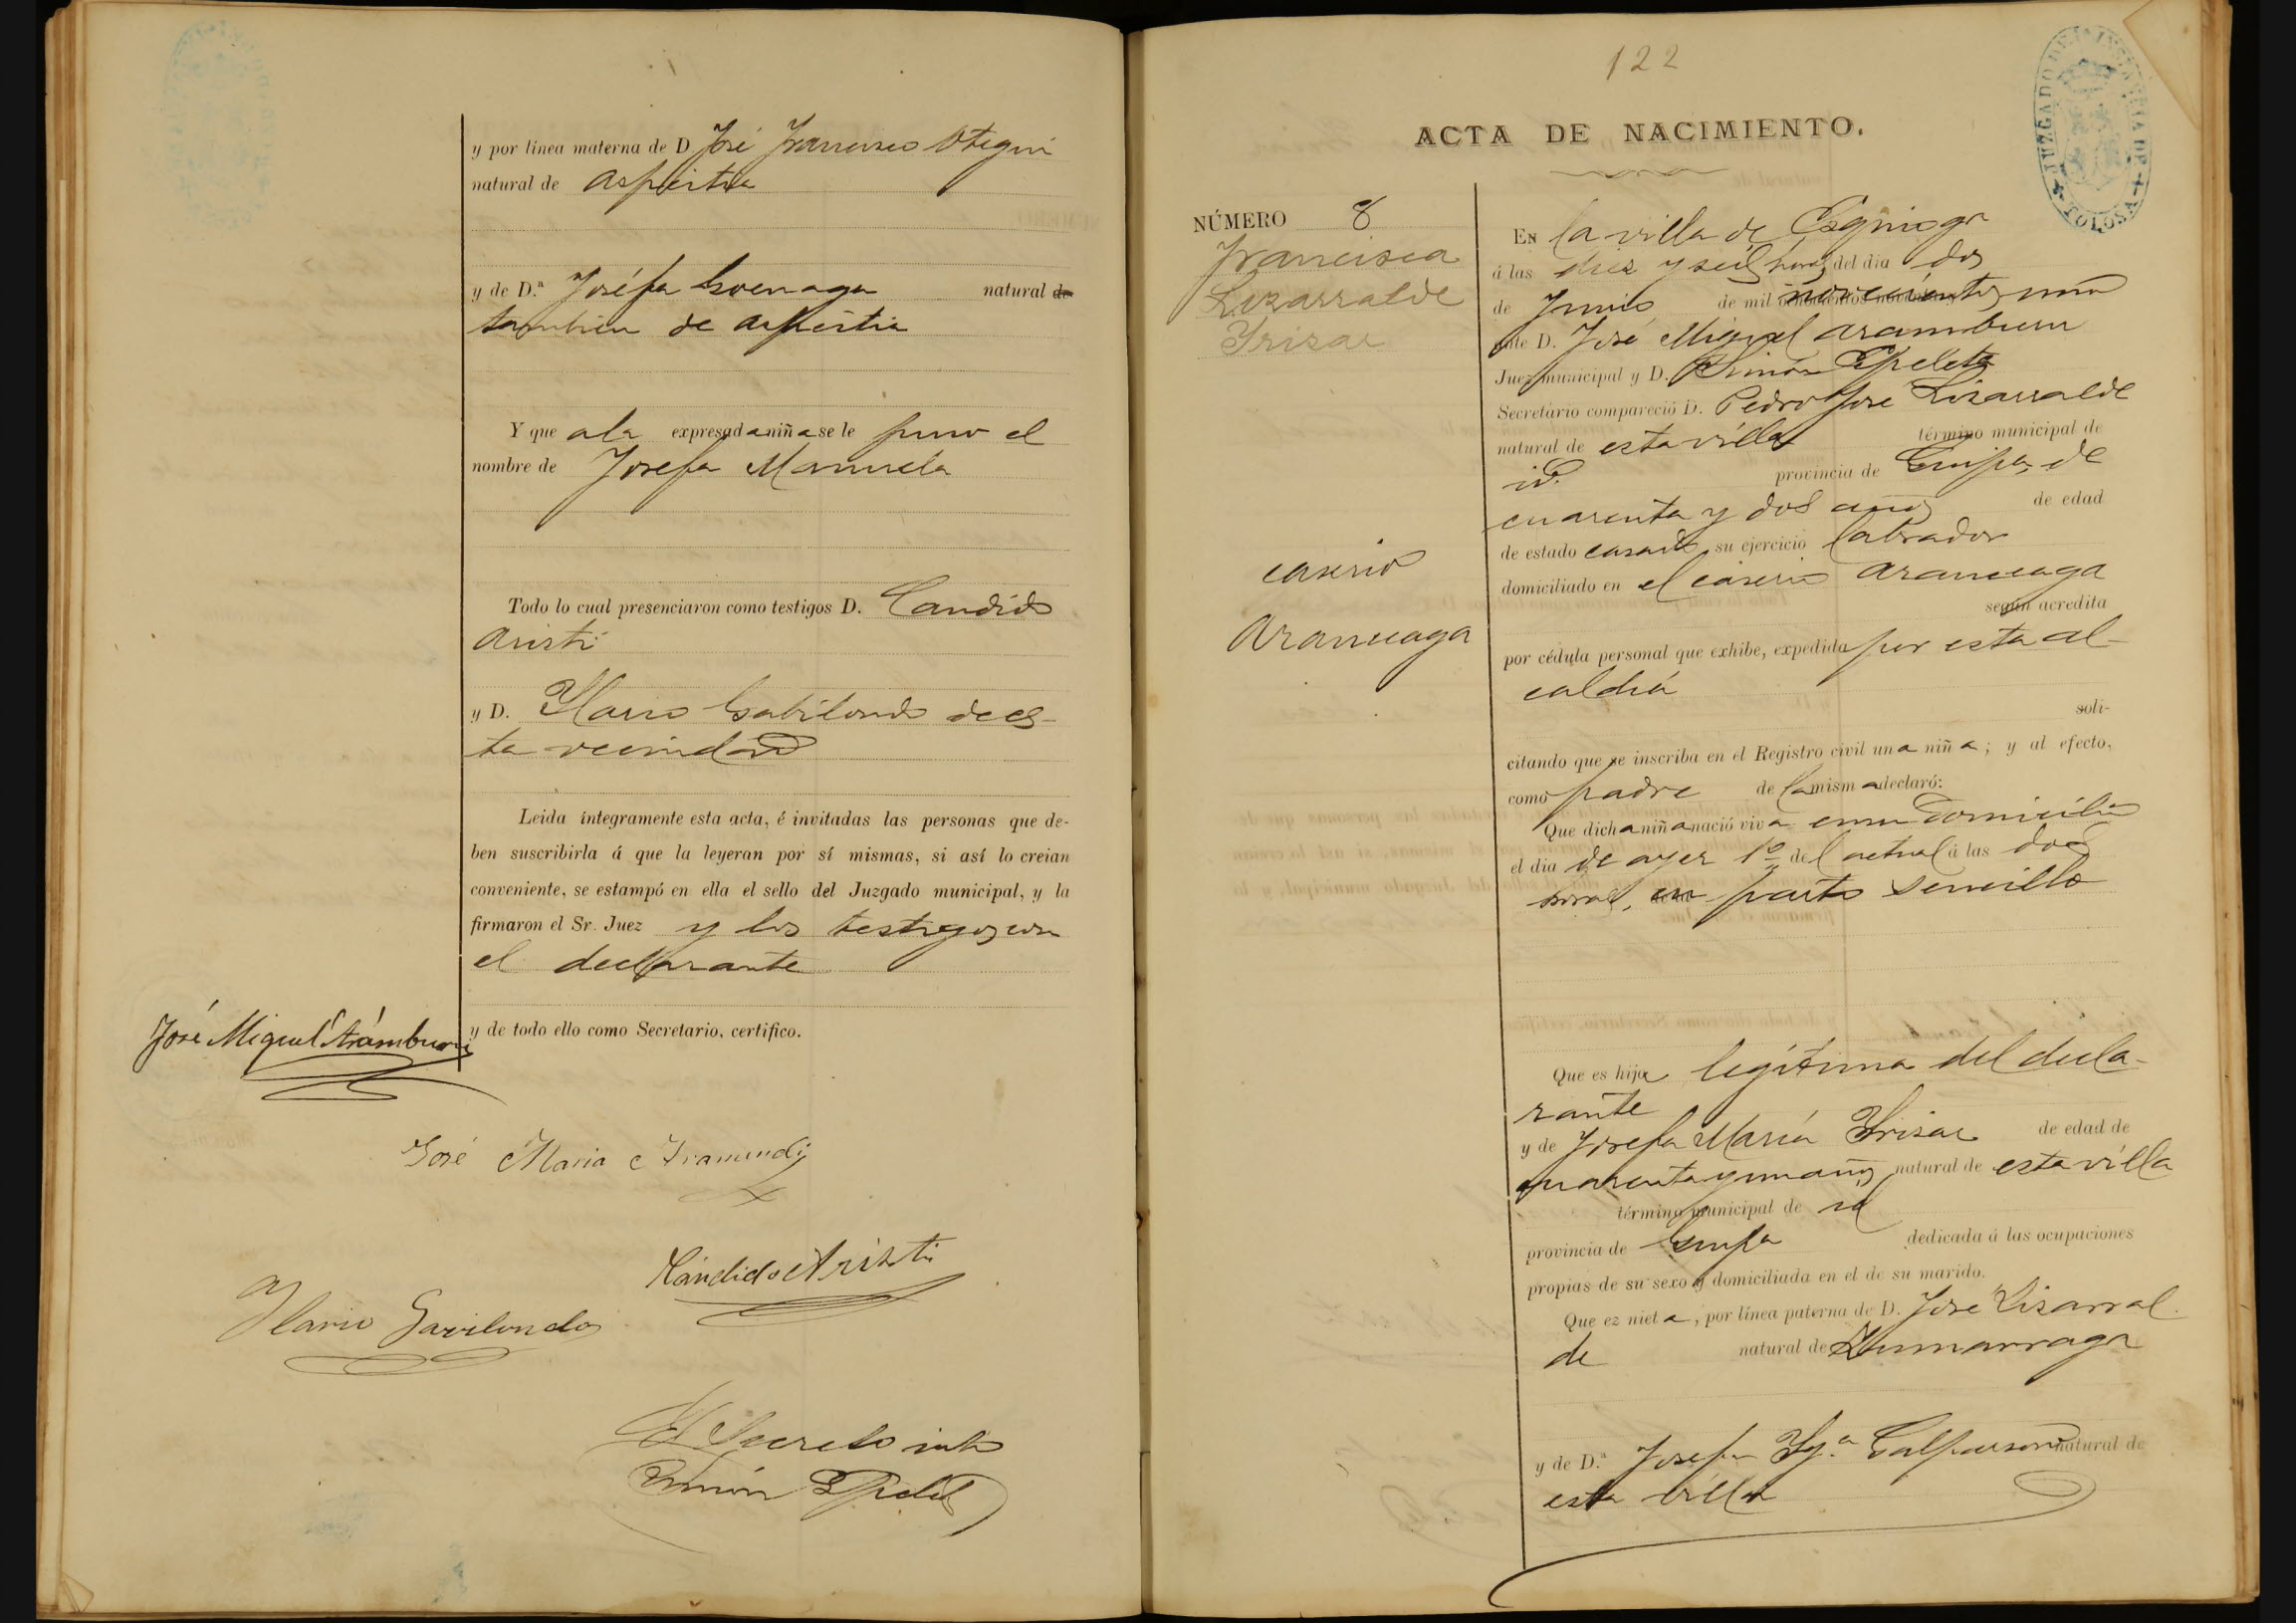 y por línea materna de D José Francisco Otegui
natural de Aspeitia
y de D.ª Joséfa Goenaga natural de
tambien de Aspeitia
Y que ala expresada niña se le puso el
nombre de Josefa Manuela
Todo lo cual presenciaron como testigos D. Candido
Aristi
y D. Ylario Gabilondo de es-
ta vecindad
Leida íntegramente esta acta, é invitadas las personas que de-
ben suscribirla á que la leyeran por sí mismas, si así lo creian
conveniente, se estampó en ella el sello del Juzgado municipal, y la
firmaron el Sr. Juez y los testigos con
el declarante
y de todo ello como Secretario, certifico.
José Miguel Arámburu
José Maria Aramendi
Cándido Aristi
Ylario Gavilondo
El Secreto into
Simón Epelde
122
ACTA DE NACIMIENTO.
JUZGADO DE INSTANCIA DE TOLOSA
NÚMERO 8
Francisca
Lizarralde
Yrizar
caserio
Aranceaga
En la villa de Ezquioga
á las diez y seis horas del dia dos
de Junio de mil novecientos uno
ante D. José Miguel Aramburu
Juez municipal y D. Simón Epelde
Secretario compareció D. Pedro José Lizarralde
natural de esta villa término municipal de
id. provincia de Guipa, de
cuarenta y dos años de edad
de estado casado su ejercicio labrador
domiciliado en el caserio Aranceaga
según acredita
por cédula personal que exhibe, expedida por esta al-
caldia
soli-
citando que se inscriba en el Registro civil una niña; y al efecto,
como padre de la misma declaró:
Que dicha niña nació viva en su domicilio
el dia de ayer 1º del actual á las doce
horas, en parto sencillo
Que es hija legítima del decla-
rante
y de Josefa María Yrizar de edad de
cuarenta y un años natural de esta villa
término municipal de id
provincia de Guipa dedicada á las ocupaciones
propias de su sexo y domiciliada en el de su marido.
Que ez nieta, por línea paterna de D. José Lizarral
de natural de Zumarraga
y de D.ª Josefa Ygª. Galparsoro natural de
esta villa